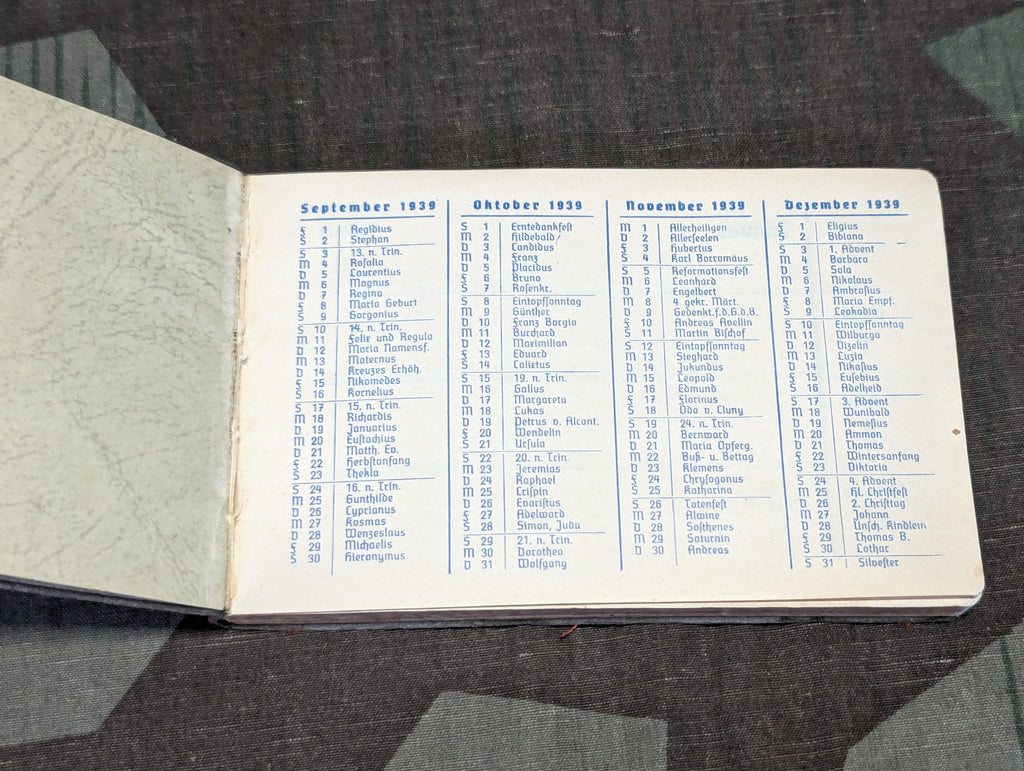 September 1939
F 1 Aegidius
S 2 Stephan
S 3 13. n. Trin.
M 4 Rosalia
D 5 Laurentius
M 6 Magnus
D 7 Regina
F 8 Mariä Geburt
S 9 Gorgonius
S 10 14. n. Trin.
M 11 Felix und Regula
D 12 Mariä Namensf.
M 13 Maternus
D 14 Kreuzes Erhöh.
F 15 Nikomedes
S 16 Kornelius
S 17 15. n. Trin.
M 18 Richardis
D 19 Januarius
M 20 Eustachius
D 21 Matth. Ev.
F 22 Herbstanfang
S 23 Thekla
S 24 16. n. Trin.
M 25 Gunthilde
D 26 Cyprianus
M 27 Kosmas
D 28 Wenzeslaus
F 29 Michaelis
S 30 Hieronymus
Oktober 1939
S 1 Erntedankfest
M 2 Hildebald
D 3 Candidus
M 4 Franz
D 5 Placidus
F 6 Bruno
S 7 Rosenkr.
S 8 Eintopfsonntag
M 9 Günther
D 10 Franz Borgia
M 11 Burchard
D 12 Maximilian
F 13 Eduard
S 14 Calixtus
S 15 19. n. Trin.
M 16 Gallus
D 17 Margareta
M 18 Lukas
D 19 Petrus v. Alcant.
F 20 Wendelin
S 21 Ursula
S 22 20. n. Trin.
M 23 Jeremias
D 24 Raphael
M 25 Crispin
D 26 Evaristus
F 27 Adelward
S 28 Simon, Juda
S 29 21. n. Trin.
M 30 Dorothea
D 31 Wolfgang
November 1939
M 1 Allerheiligen
D 2 Allerseelen
F 3 Hubertus
S 4 Karl Borromäus
S 5 Reformationsfest
M 6 Leonhard
D 7 Engelbert
M 8 4 gekr. Märt.
D 9 Gedenkt.f.d.G.d.B.
F 10 Andreas Avellin
S 11 Martin Bischof
S 12 Eintopfsonntag
M 13 Sieghard
D 14 Jukundus
M 15 Leopold
D 16 Edmund
F 17 Florinus
S 18 Odo v. Cluny
S 19 24. n. Trin.
M 20 Bernward
D 21 Mariä Opferg.
M 22 Buß- u. Bettag
D 23 Klemens
F 24 Chrysogonus
S 25 Katharina
S 26 Totenfest
M 27 Alwine
D 28 Sosthenes
M 29 Saturnin
D 30 Andreas
Dezember 1939
F 1 Eligius
S 2 Bibiana
S 3 1. Advent
M 4 Barbara
D 5 Sola
M 6 Nikolaus
D 7 Ambrosius
F 8 Mariä Empf.
S 9 Leokadia
S 10 Eintopfsonntag
M 11 Wilburga
D 12 Vizelin
M 13 Luzia
D 14 Nikasius
F 15 Eusebius
S 16 Adelheid
S 17 3. Advent
M 18 Wunibald
D 19 Nemesius
M 20 Ammon
D 21 Thomas
F 22 Wintersanfang
S 23 Viktoria
S 24 4. Advent
M 25 Hl. Christfest
D 26 2. Christtag
M 27 Johann
D 28 Unsch. Kindlein
F 29 Thomas B.
S 30 Lothar
S 31 Silvester